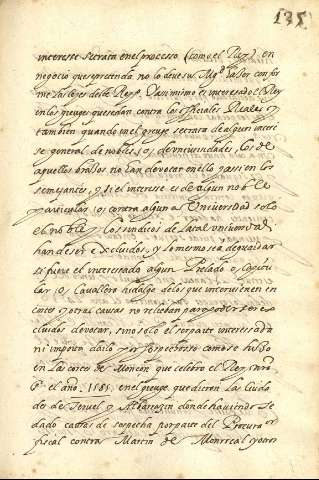 135
interesse se trata en el processo (como el Rey) en
negocio que se pretenda no lo deve su Mg.d hazer confor
me las leyes deste Reyno. Y assi mismo es interesado el Rey
en los greuges que se dan contra los officiales Reales, y
tambien quando en el greuge se trata de algun interes
se general de nobles, o de universidades, los de
aquellos brazos no han de votar en ello, y assi en los
semejantes, y si el interesse es de algun noble
particular, o contra alguna Universidad solo
el noble, y los sindicos de la tal universidad
han de ser excluidos, y lo mesmo sea de guardar
si fuere el interessado algun Prelado, o Capitu
lar, o Cavallero hidalgo de los que intervienen en
cortes, y otras causas no se han para poder ser ex
cluidos de votar, sino solo el ser parte interesada
ni importa dallo por sospechoso como se hizo
en las cortes de Monçon que celebro el Rey
el año 1585. en el greuge que dieron las Ciuda
des de Teruel, y Albarrazin donde haviendo se
dado causas de sospecha por parte del Procurador
fiscal contra Martin de Monrreal, y otros